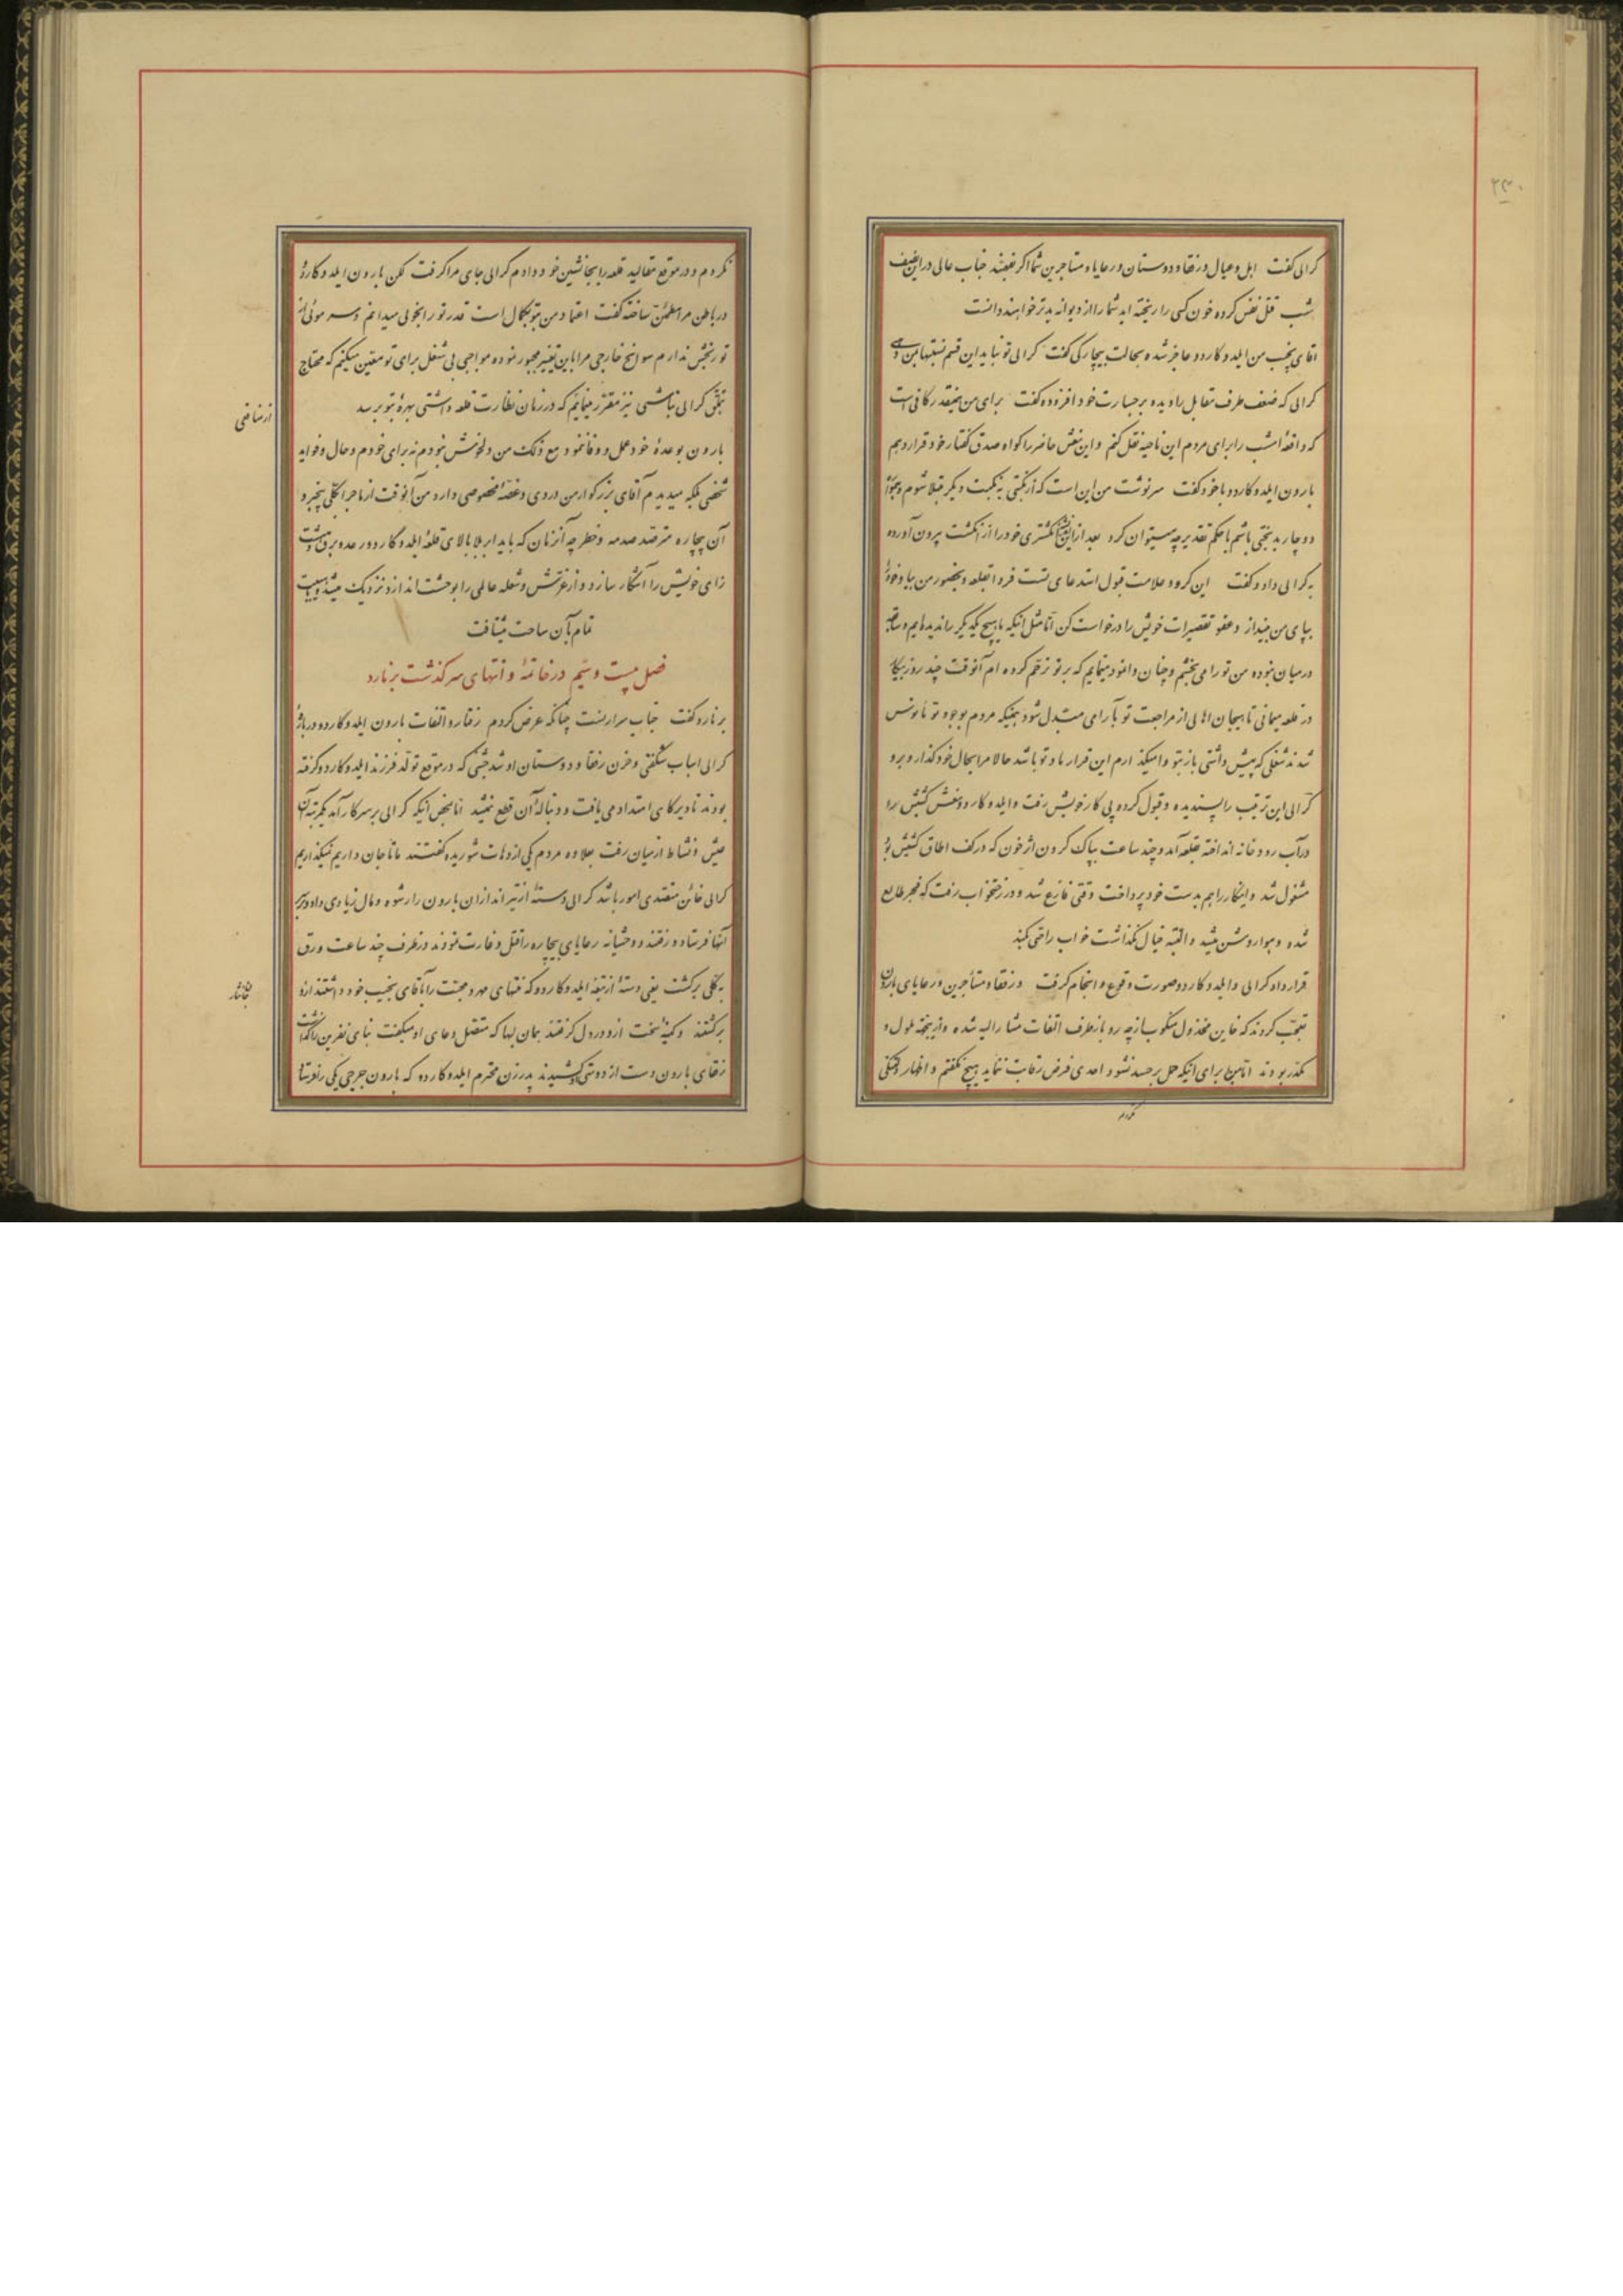 ۲۳۰
کرالی کفت اهل و عیال و رفقا و دوستان و رعایا و مستاجرین شما اکر بفهمند جناب عالی در این نصف
شب قتل نفس کرده خون کسی را ریخته اید شما را از دیوانه بدتر خواهند دانست
اقای نجیب من ایلدوکاردو عاجز شده بحالت بیچارکی کفت کرالی تو نباید این قسم نسبتها بمن دهی
کرالی که ضعف طرف مقابل را دیده بر جسارت خود افزوده کفت برای من همینقدر کافی است
که واقعهٔ امشب را برای مردم این ناحیه نقل کنم و این نعش حاضر را کواه صدق کفتار خود قرار دهم
بارون ایلدوکاردو با خود کفت سرنوشت من این است که از نکبتی به نکبت دیکر مبتلا شوم و
دوچار بدبختی باشم با حکم تقدیر چه میتوان کرد بعد از این انکشتری خود را از انکشت بیرون آورده
به کرالی داد و کفت این کرو و علامت قبول استدعای تست فردا بقلعه و بحضور من بیا و خود را
بپای من بینداز و عفو تقصیرات خویش را درخواست کن اما مثل اینکه ما هیچ یکدیکر را ندیده‌ایم و
در میان نبوده من تو را می بخشم و چنان وانمود مینمایم که بر تو ترحم کرده ام آنوقت چند روز بیکار
در قلعه میمانی تا هیجان اهالی از مراجعت تو بآرامی مبتدل شود همینکه مردم بوجود تو مانوس
شدند شغلی که پیش داشتی باز بتو وامیکذارم این قرار ما و تو باشد حالا مرا بحال خود کذار و برو
کرالی این ترتیب را پسندیده و قبول کرده پی کار خویش رفت و ایلدوکاردو نعش کشیش را
در آب رودخانه انداخته بقلعه آمد و چند ساعت بپاک کردن اثر خون که در کف اطاق کشیش بود
مشغول شد و اینکار را هم بدست خود پرداخت وقتی فارغ شد و در رختخواب رفت که فجر طالع
شده و هوا روشن میشد و البته خیال نکذاشت خواب راحتی کند
قرارداد کرالی و ایلدوکاردو صورت وقوع و انجام کرفت و رفقا و مستأجرین و رعایای بارون
تعجب کردند که خاین مخذول منکوب از چه رو باز طرف التفات مشارالیه شده و از اینجهة ملول و
مکدر بودند اما من برای اینکه حمل بر حسد نشود و احدی فرض رقابت ننماید هیچ نکفتم و اظهار دلتنکی
نکردم
نکردم و در موقع مقالید قلعه را بجانشین خود دادم کرالی جای مرا کرفت لکن بارون ایلدوکاردو
در باطن مرا مطمئن ساخته کفت اعتماد من بتو بکمال است قدر تو را بخوبی میدانم و سر موئی از
تو رنجش ندارم سوانح خارجی مرا باین تغییر مجبور نموده مواجبی بی شغل برای تو معین میکنم که محتاج
بتملق کرالی نباشی نیز مقرر مینمایم که در زمان نظارت قلعه داشتی بهره بتو برسد
بارون بوعدهٔ خود عمل و وفا نمود مع ذلک من دلخوش نبودم نه برای خودم و حال و فواید
شخصی بلکه میدیدم آقای بزرکوار من دردی و غصهٔ مخصوصی دارد من آنوقت از ماجرا بکلی بیخبر و
آن بیچاره مترصد صدمه و خطر چه آنزمان که باید ابر بلا بالای قلعهٔ ایلدوکاردو رعد و برق وحشت
زای خویش را آشکار سازد و از غرش و شعله عالمی را بوحشت اندازد نزدیک میشد و مصیبت
تمام بآن ساحت میتافت
فصل بیست و سیّم در خاتمهٔ و انتهای سرکذشت برنارد
برنارد کفت جناب سرارنست چنانکه عرض کردم رفتار و التفات بارون ایلدوکاردو دربارهٔ
کرالی اسباب شکفتی و حزن رفقا و دوستان او شد جشنی که در موقع تولد فرزند ایلدوکاردو کرفته
بودند تا دیرکاهی امتداد می یافت و دنبالهٔ آن قطع نمیشد اما بمحض اینکه کرالی بر سر کار آمد یکمرتبه آن
عیش و نشاط از میان رفت بعلاوه مردم یکی از دهات شوریده کفتند ما تا جان داریم نمیکذاریم
کرالی خائن متصدی امور باشد کرالی دستهٔ از تیراندازان بارون را رشوه و مال زیادی داد و بر سر
آنها فرستاد و رفتند و وحشیانه رعایای بیچاره را قتل و غارت نمودند در ظرف چند ساعت ورق
به کلی برکشت یعنی دستهٔ از تبعهٔ ایلدوکاردو که منتهای مهر و محبت را بآقای نجیب خود داشتند از او
برکشتند و کینهٔ سخت از او در دل کرفتند همان لبها که متصل دعای او میکفت بنای نفرین را کذاشت
رفقای بارون دست از دوستی کشیدند پدرزن محترم ایلدوکاردو که بارون جرجی یکی از